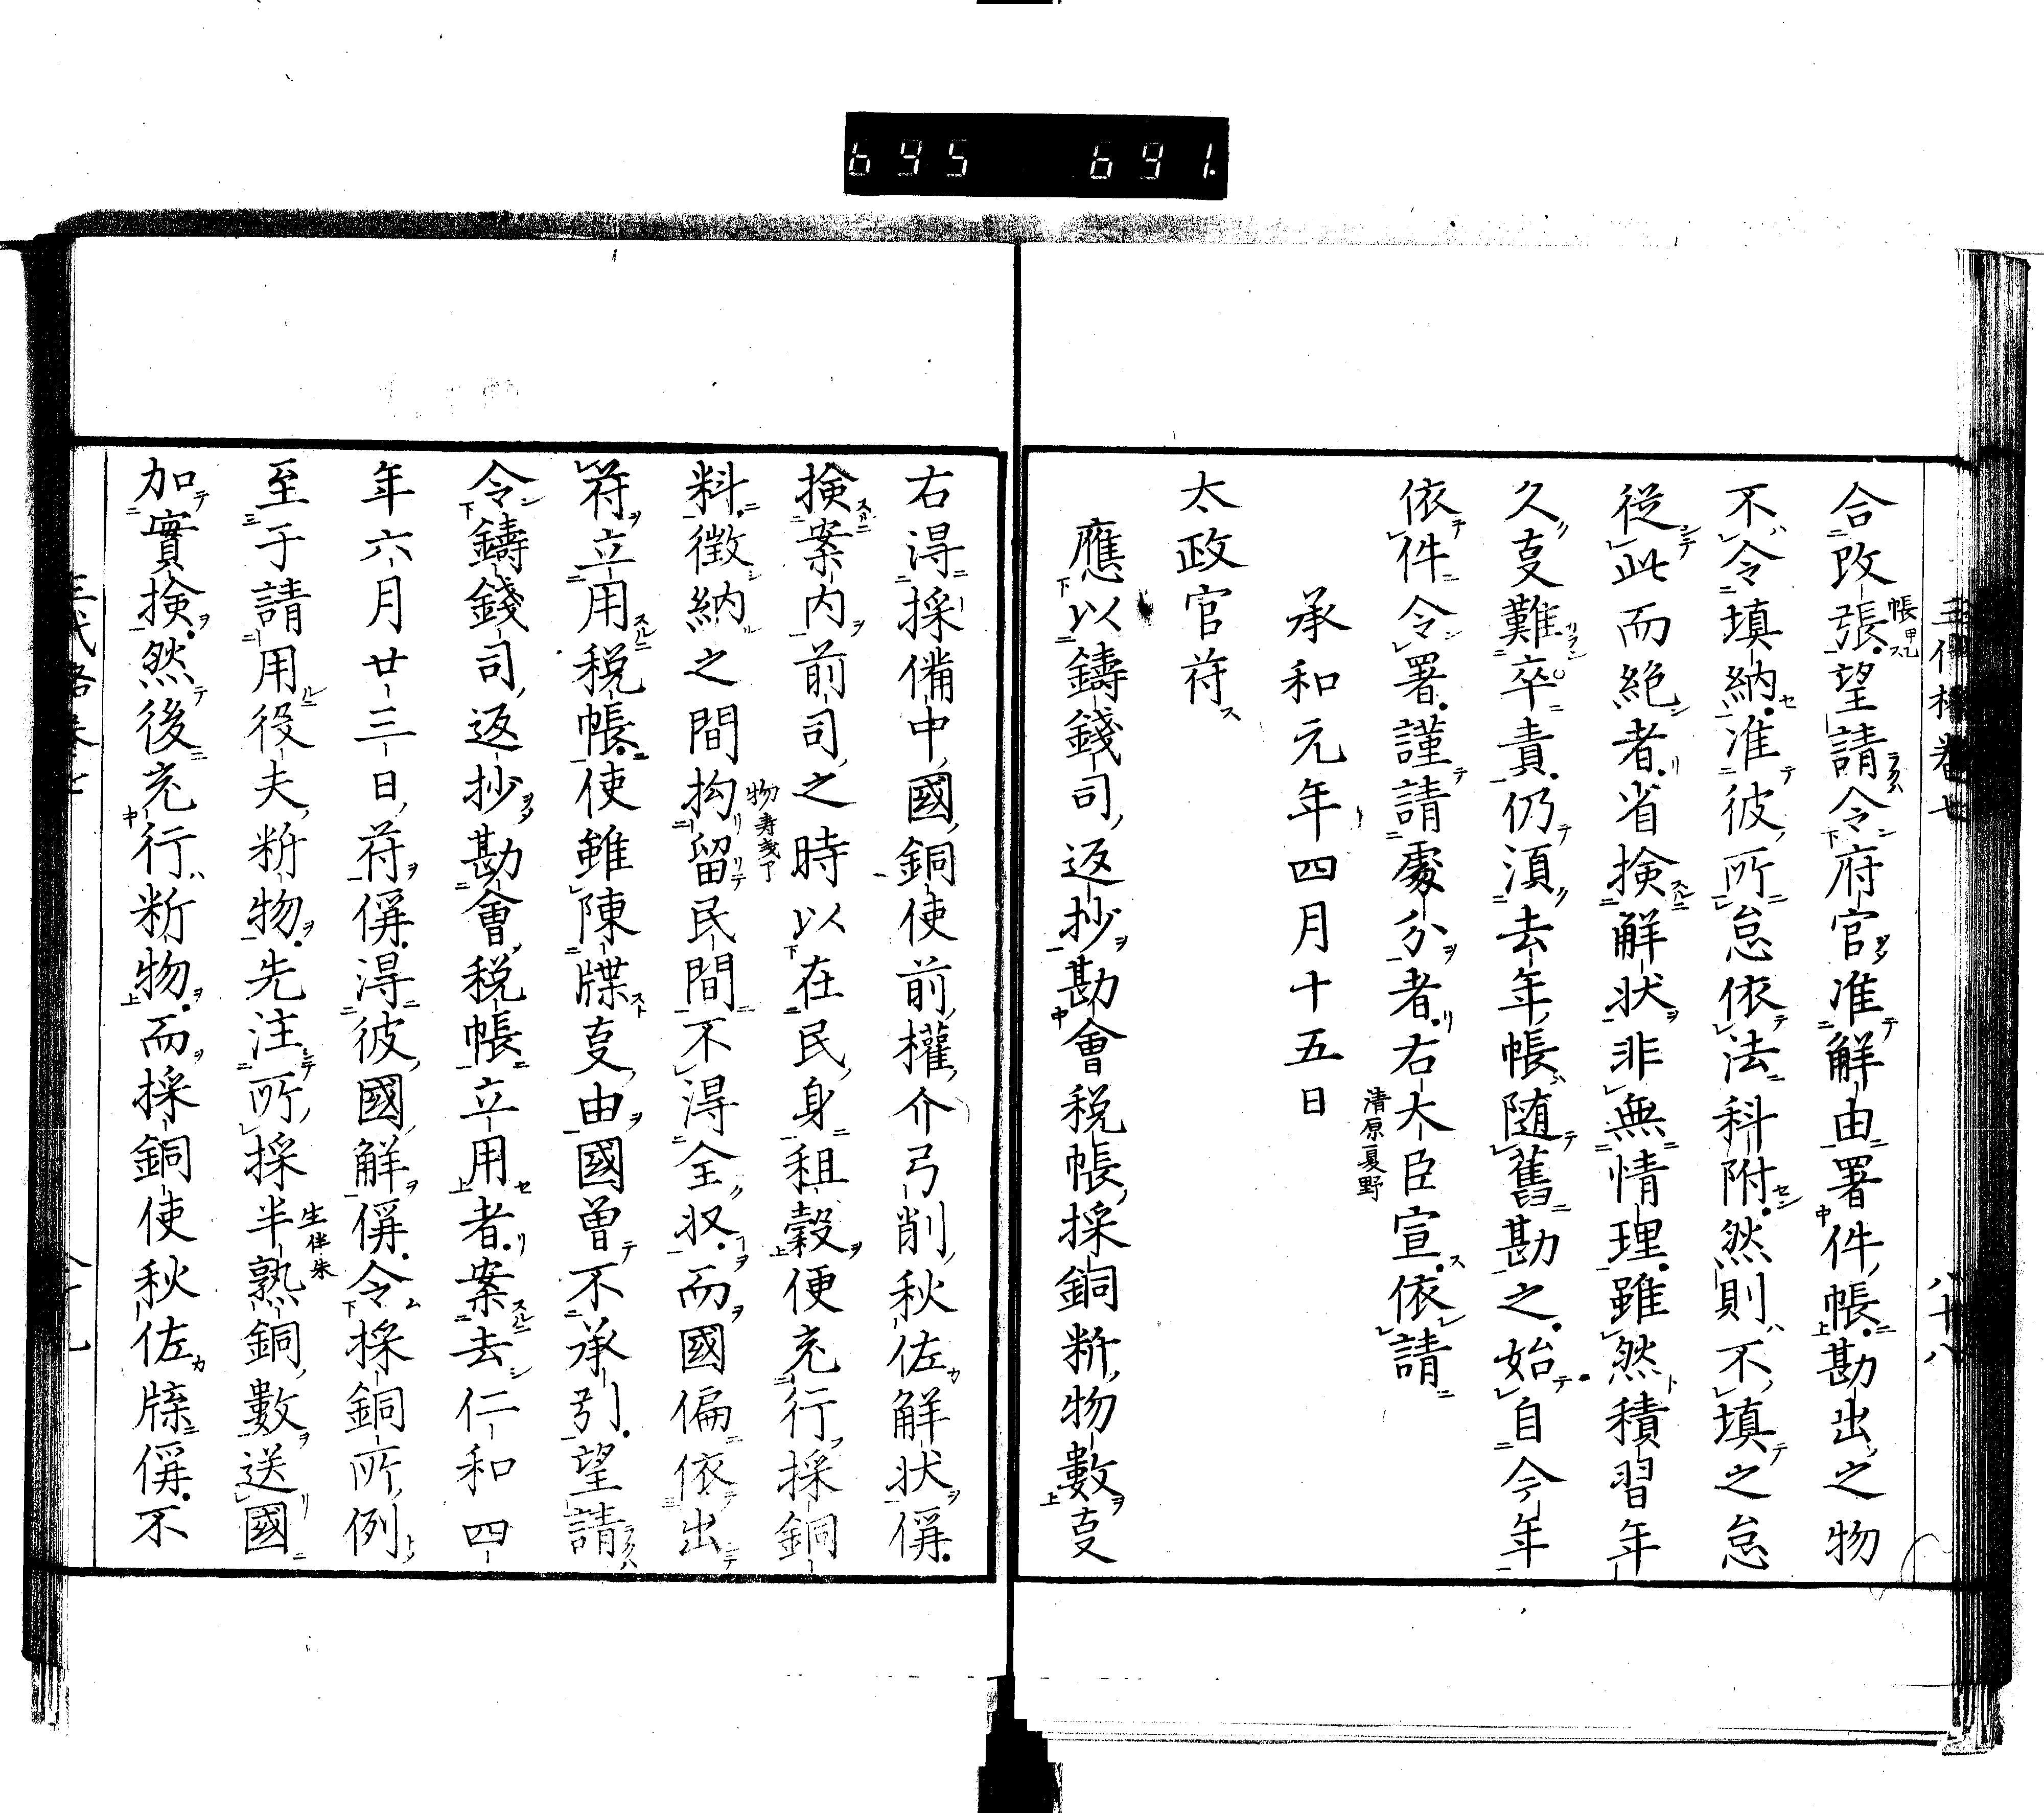 695 691.
三代格卷七 八十八
合改張望請令府官准解由署件帳勘出之物
帳甲乙
不令填納准彼所怠依法科附然則不填之怠
從此而絶者省撿解状非無情理雖然積習年
久叓難卒責仍湏去年帳随舊勘之始自今年
依件令署謹請處分者右大臣宣依請
清原夏野
承和元年四月十五日
太政官符
應以鑄錢司返抄勘會税帳採銅䉼物數叓
右得採備中國銅使前權介弓削秋佐解状偁
撿案内前司之時以在民身租穀便充行採銅
料徴納之間拘留民間不得全収而國偏依出
符立用税帳使雖陳牒叓由國曽不承引望請
令鑄錢司返抄勘會税帳立用者案去仁和四
年六月廿三日符偁得彼國解偁令採銅所例
至于請用役夫䉼物先注所採半熟銅數送國
生伴朱
加實撿然後充行䉼物而採銅使秋佐牒偁不
三代格卷七